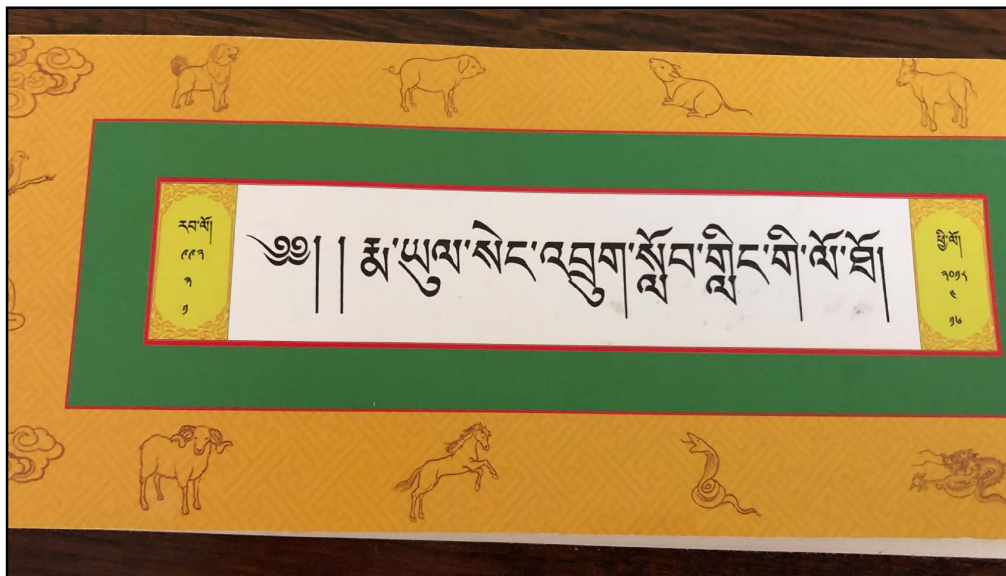 རབ་ལོ།
༩༩༢
༣
༡
༄༅། །རྨ་ཡུལ་སེང་འབྲུག་སློབ་གླིང་གི་ལོ་ཐོ།
ཕྱི་ལོ།
༢༠༡༨
༤
༡༦